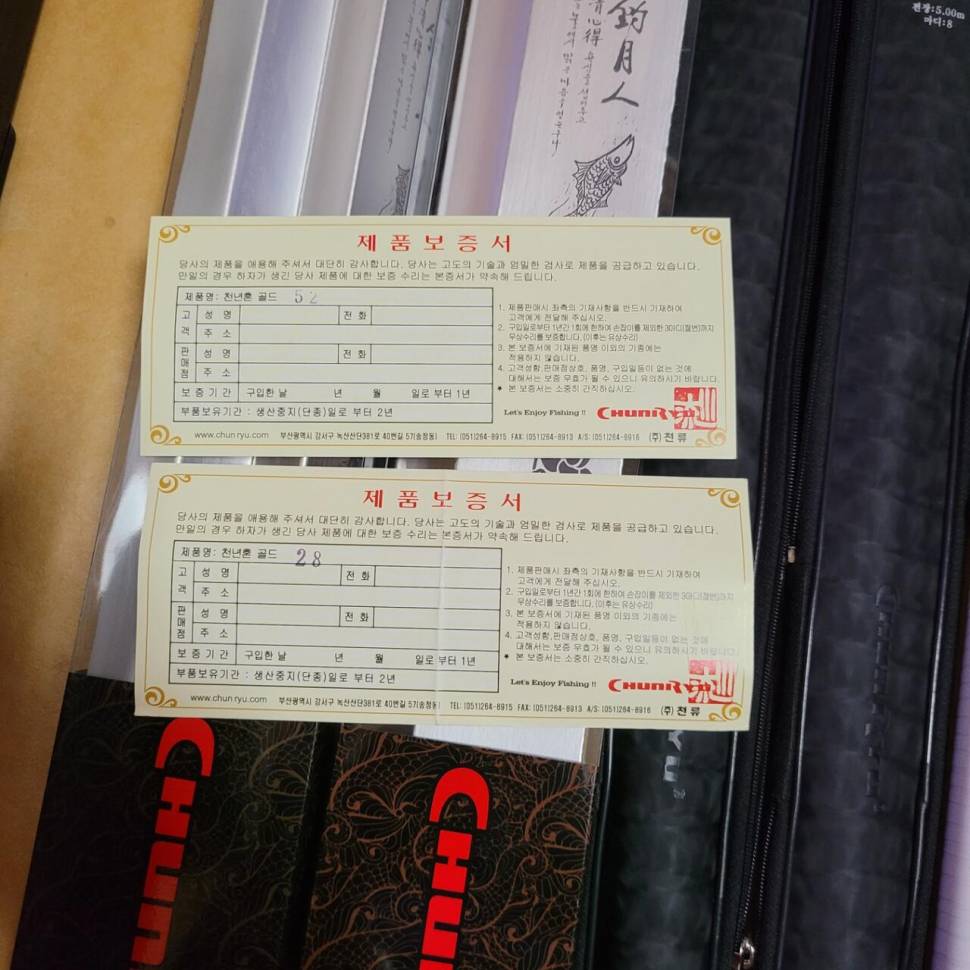 전장:5.00m
마디:8
釣月人
心得
제품보증서
당사의 제품을 애용해 주셔서 대단히 감사합니다. 당사는 고도의 기술과 엄밀한 검사로 제품을 공급하고 있습니다.
만일의 경우 하자가 생긴 당사 제품에 대한 보증 수리는 본증서가 약속해 드립니다.
제품명: 천년혼 골드 52
고객 성명 전화
주소
판매점 성명 전화
주소
보증기간 구입한 날 년 월 일로 부터 1년
부품보유기간 : 생산중지(단종)일로 부터 2년
1. 제품판매시 좌측의 기재사항을 반드시 기재하여
고객에게 전달해 주십시오.
2. 구입일로부터 1년간 1회에 한하여 손잡이를 제외한 3마디(절번)까지
무상수리를 보증합니다. (이후는 유상수리)
3. 본 보증서에 기재된 품명 이외의 기종에는
적용하지 않습니다.
4. 고객성함,판매점상호, 품명, 구입일등이 없는 것에
대해서는 보증 무효가 될 수 있으니 유의하시기 바랍니다.
◆ 본 보증서는 소중히 간직하십시오.
Let's Enjoy Fishing !! CHUNRYU
www.chunryu.com 부산광역시 강서구 녹산산단381로 40번길 57(송정동) TEL: (051)264-8915 FAX: (051)264-8913 A/S: (051)264-8916 (주)천류
제품보증서
당사의 제품을 애용해 주셔서 대단히 감사합니다. 당사는 고도의 기술과 엄밀한 검사로 제품을 공급하고 있습니다.
만일의 경우 하자가 생긴 당사 제품에 대한 보증 수리는 본증서가 약속해 드립니다.
제품명: 천년혼 골드 28
고객 성명 전화
주소
판매점 성명 전화
주소
보증기간 구입한 날 년 월 일로 부터 1년
부품보유기간 : 생산중지(단종)일로 부터 2년
1. 제품판매시 좌측의 기재사항을 반드시 기재하여
고객에게 전달해 주십시오.
2. 구입일로부터 1년간 1회에 한하여 손잡이를 제외한 3마디(절번)까지
무상수리를 보증합니다. (이후는 유상수리)
3. 본 보증서에 기재된 품명 이외의 기종에는
적용하지 않습니다.
4. 고객성함,판매점상호, 품명, 구입일등이 없는 것에
대해서는 보증 무효가 될 수 있으니 유의하시기 바랍니다.
◆ 본 보증서는 소중히 간직하십시오.
Let's Enjoy Fishing !! CHUNRYU
www.chunryu.com 부산광역시 강서구 녹산산단381로 40번길 57(송정동) TEL: (051)264-8915 FAX: (051)264-8913 A/S: (051)264-8916 (주)천류
CHUN
CHUN